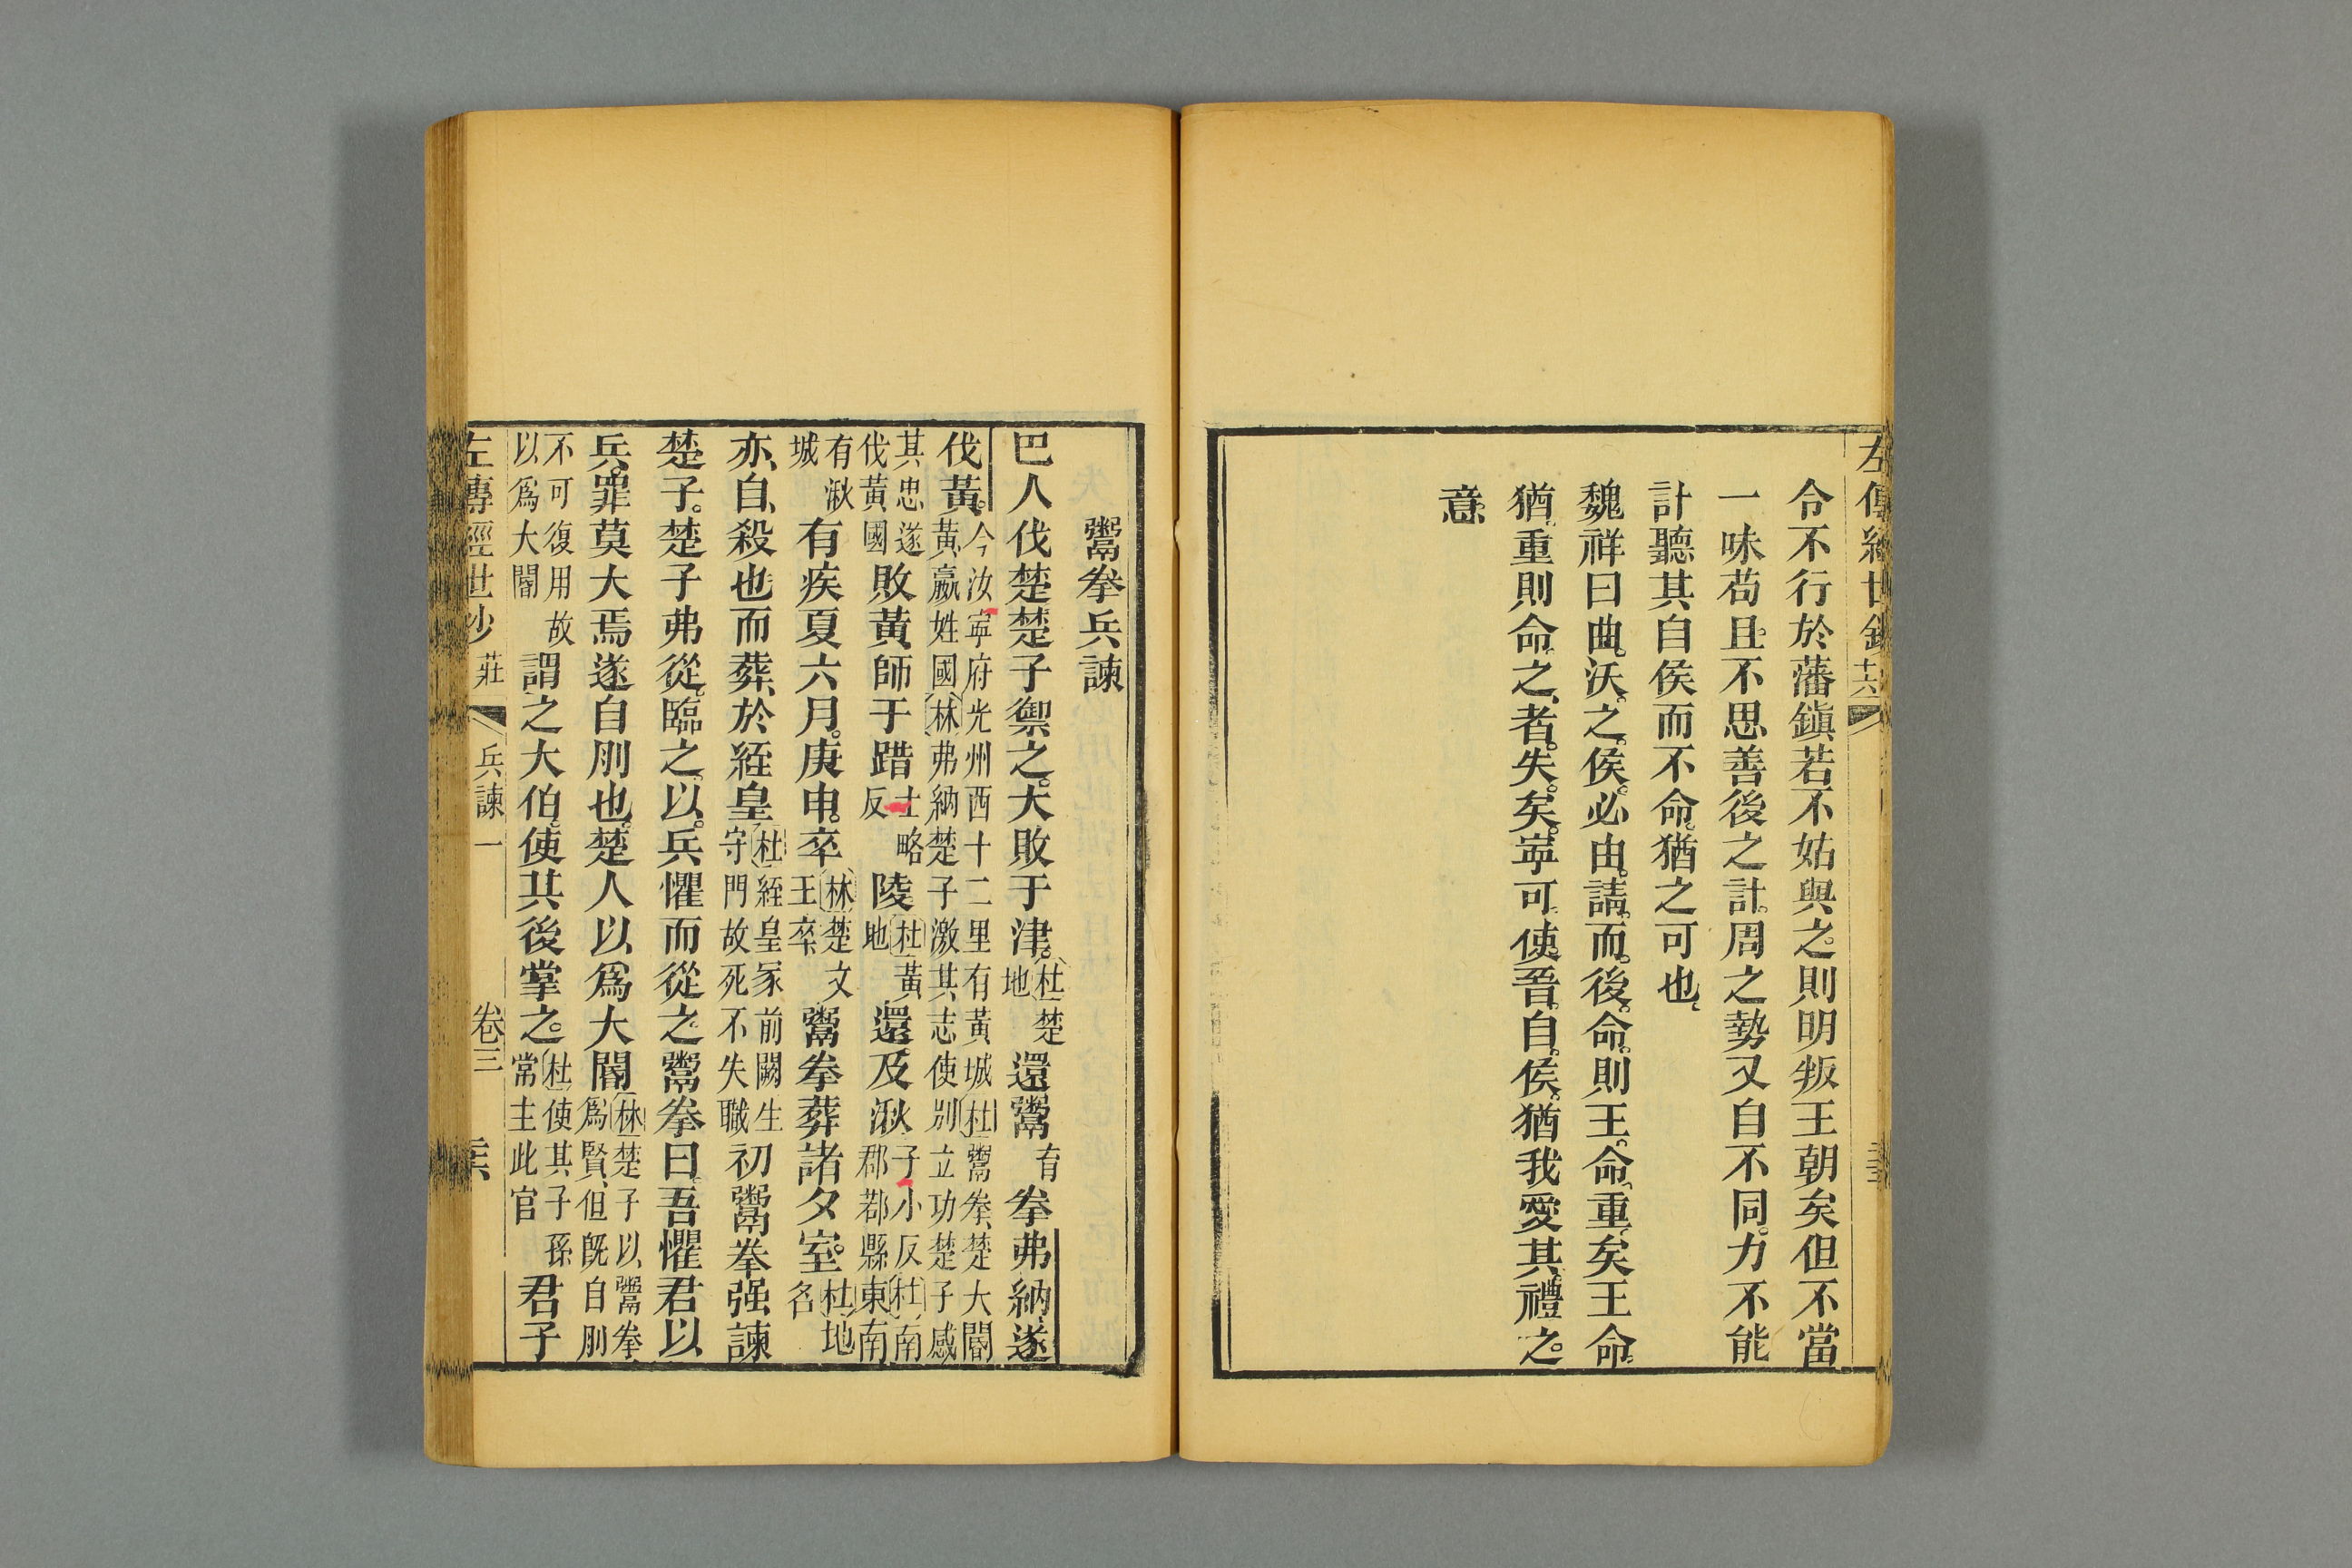 左傳經世鈔
令不行於藩鎮若不姑與之則明叛王朝矣但不當
一味苟且不思善後之計周之勢又自不同力不能
計聽其自侯而不命猶之可也
魏祥曰曲沃之侯必由請而後命則王命重矣王命
猶重則命之者失矣寧可使吾自侯猶我愛其禮之
意
鬻拳兵諫
巴人伐楚楚子禦之大敗于津杜楚地還鬻育拳弗納遂
伐黃今汝寧府光州西十二里有黃城杜鬻拳楚大閽黃嬴姓國林弗納楚子激其志使別立功楚子感
其忠遂伐黃國敗黃師于踖士略反陵杜黃地還及湫子小反杜南郡鄀縣東南
有湫城有疾夏六月庚申卒林楚文王卒鬻拳葬諸夕室杜地名
亦自殺也而葬於絰皇杜絰皇冢前闕生守門故死不失職初鬻拳强諫
楚子楚子弗從臨之以兵懼而從之鬻拳曰吾懼君以
兵罪莫大焉遂自刖也楚人以爲大閽林楚子以鬻拳爲賢但旣自刖
不可復用故以爲大閽謂之大伯使其後掌之杜使其子孫常主此官君子
左傳經世鈔 莊 兵諫一 卷三